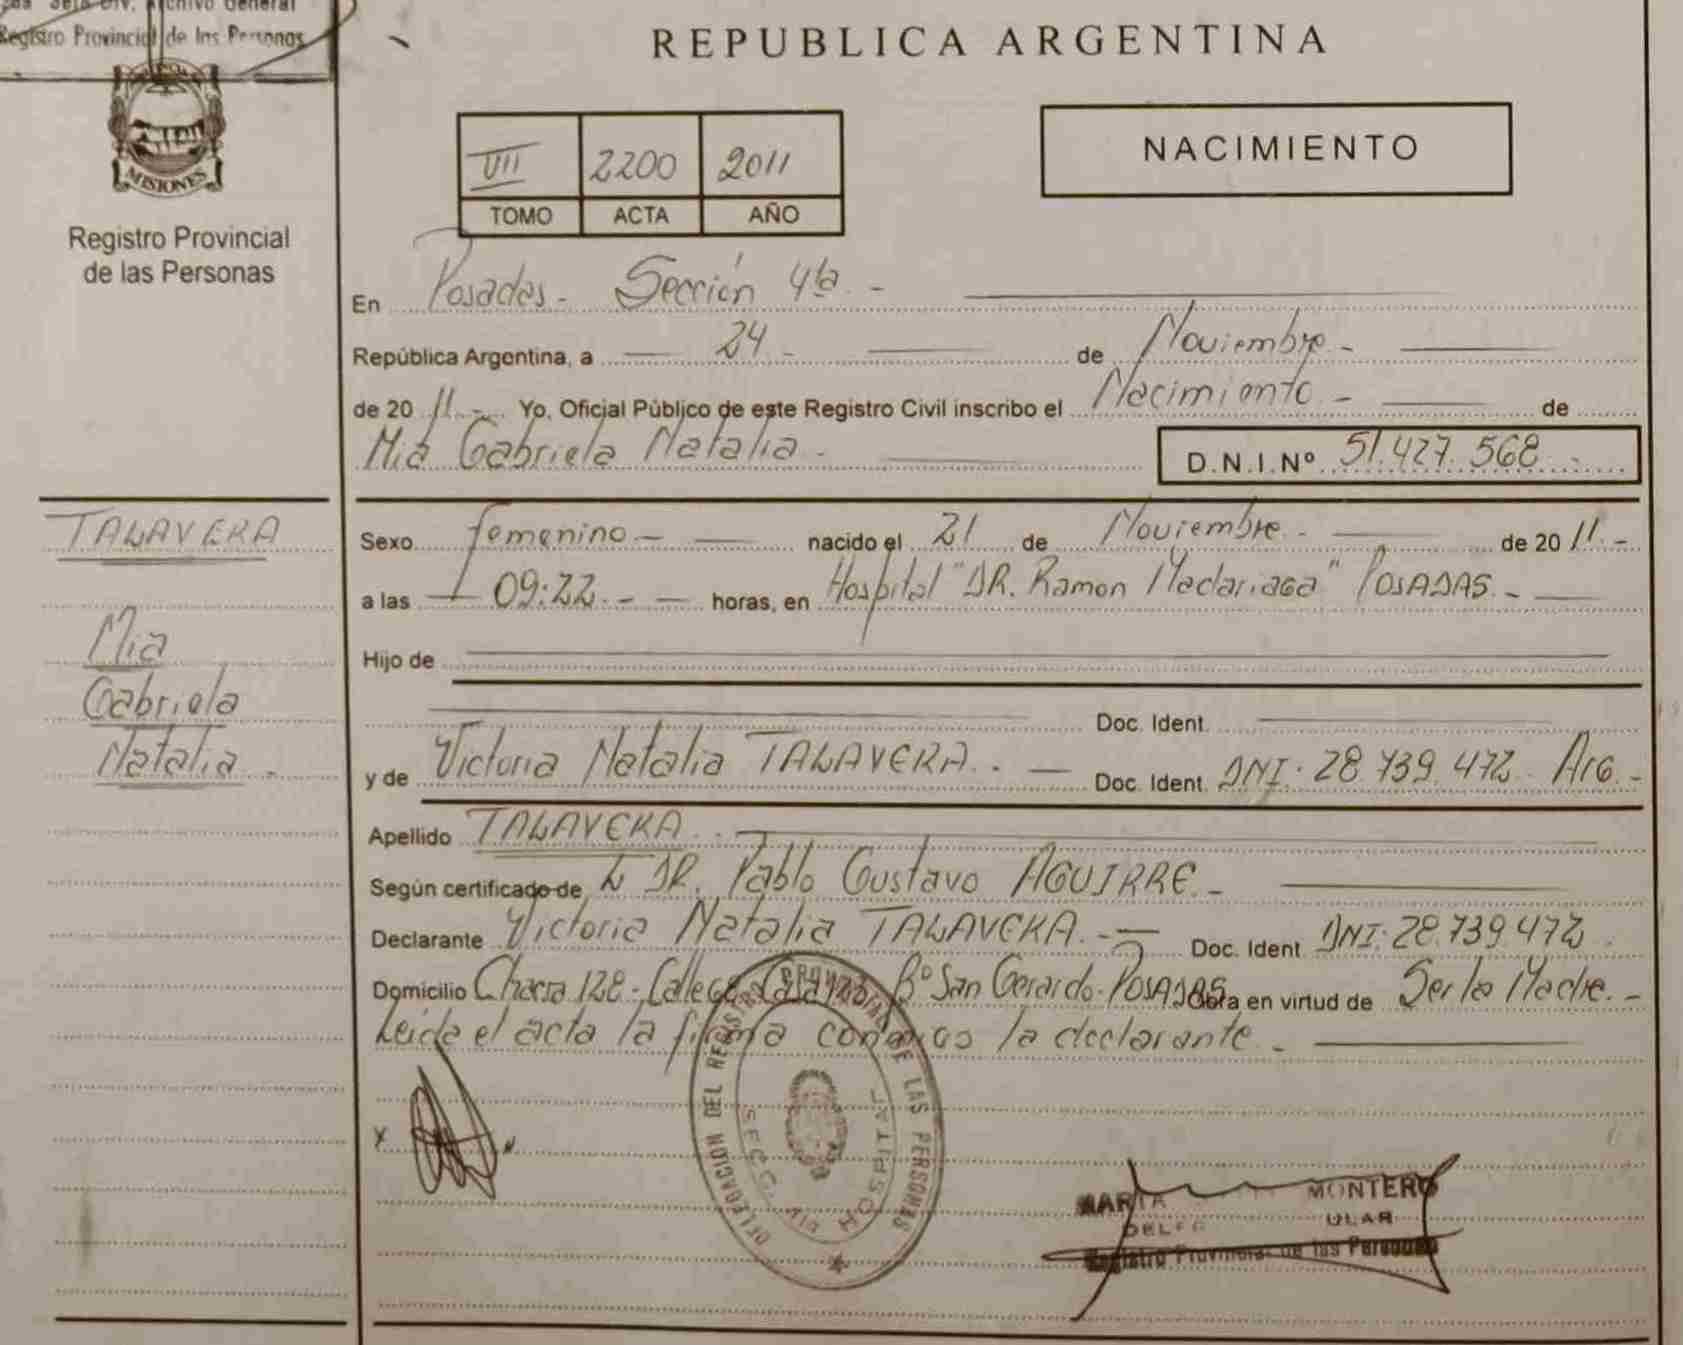 Div. Archivo General
Registro Provincial de las Personas
MISIONES
Registro Provincial
de las Personas
TALAVERA
Mia
Gabriela
Natalia.-
REPUBLICA ARGENTINA
VII 2200 2011
TOMO ACTA AÑO
NACIMIENTO
En Posadas - Sección 4ta -
República Argentina, a 24 - de Noviembre -
de 20 11.- Yo, Oficial Público de este Registro Civil inscribo el Nacimiento - de
Mia Gabriela Natalia - D.N.I.Nº 51.427.568 -
Sexo femenino - nacido el 21 de Noviembre - de 20 11.-
a las 09:22 - horas, en Hospital "DR. Ramon Madariaga" POSADAS -
Hijo de
Doc. Ident.
y de Victoria Natalia TALAVERA - Doc. Ident. DNI: 28.739.472 - Arg.-
Apellido TALAVERA -
Según certificado de DR. Pablo Gustavo AGUIRRE -
Declarante Victoria Natalia TALAVERA - Doc. Ident DNI: 28.739.472
Domicilio Chacra 128 - Calle Casa Bº San Gerardo - POSADAS Obra en virtud de Ser la Madre.-
Leida el acta la firma conmigo la declarante -
X
DELEGACION DEL REGISTRO PROVINCIAL DE LAS PERSONAS
SECC. HOSPITAL
MONTERO
Registro Provincial de las Personas